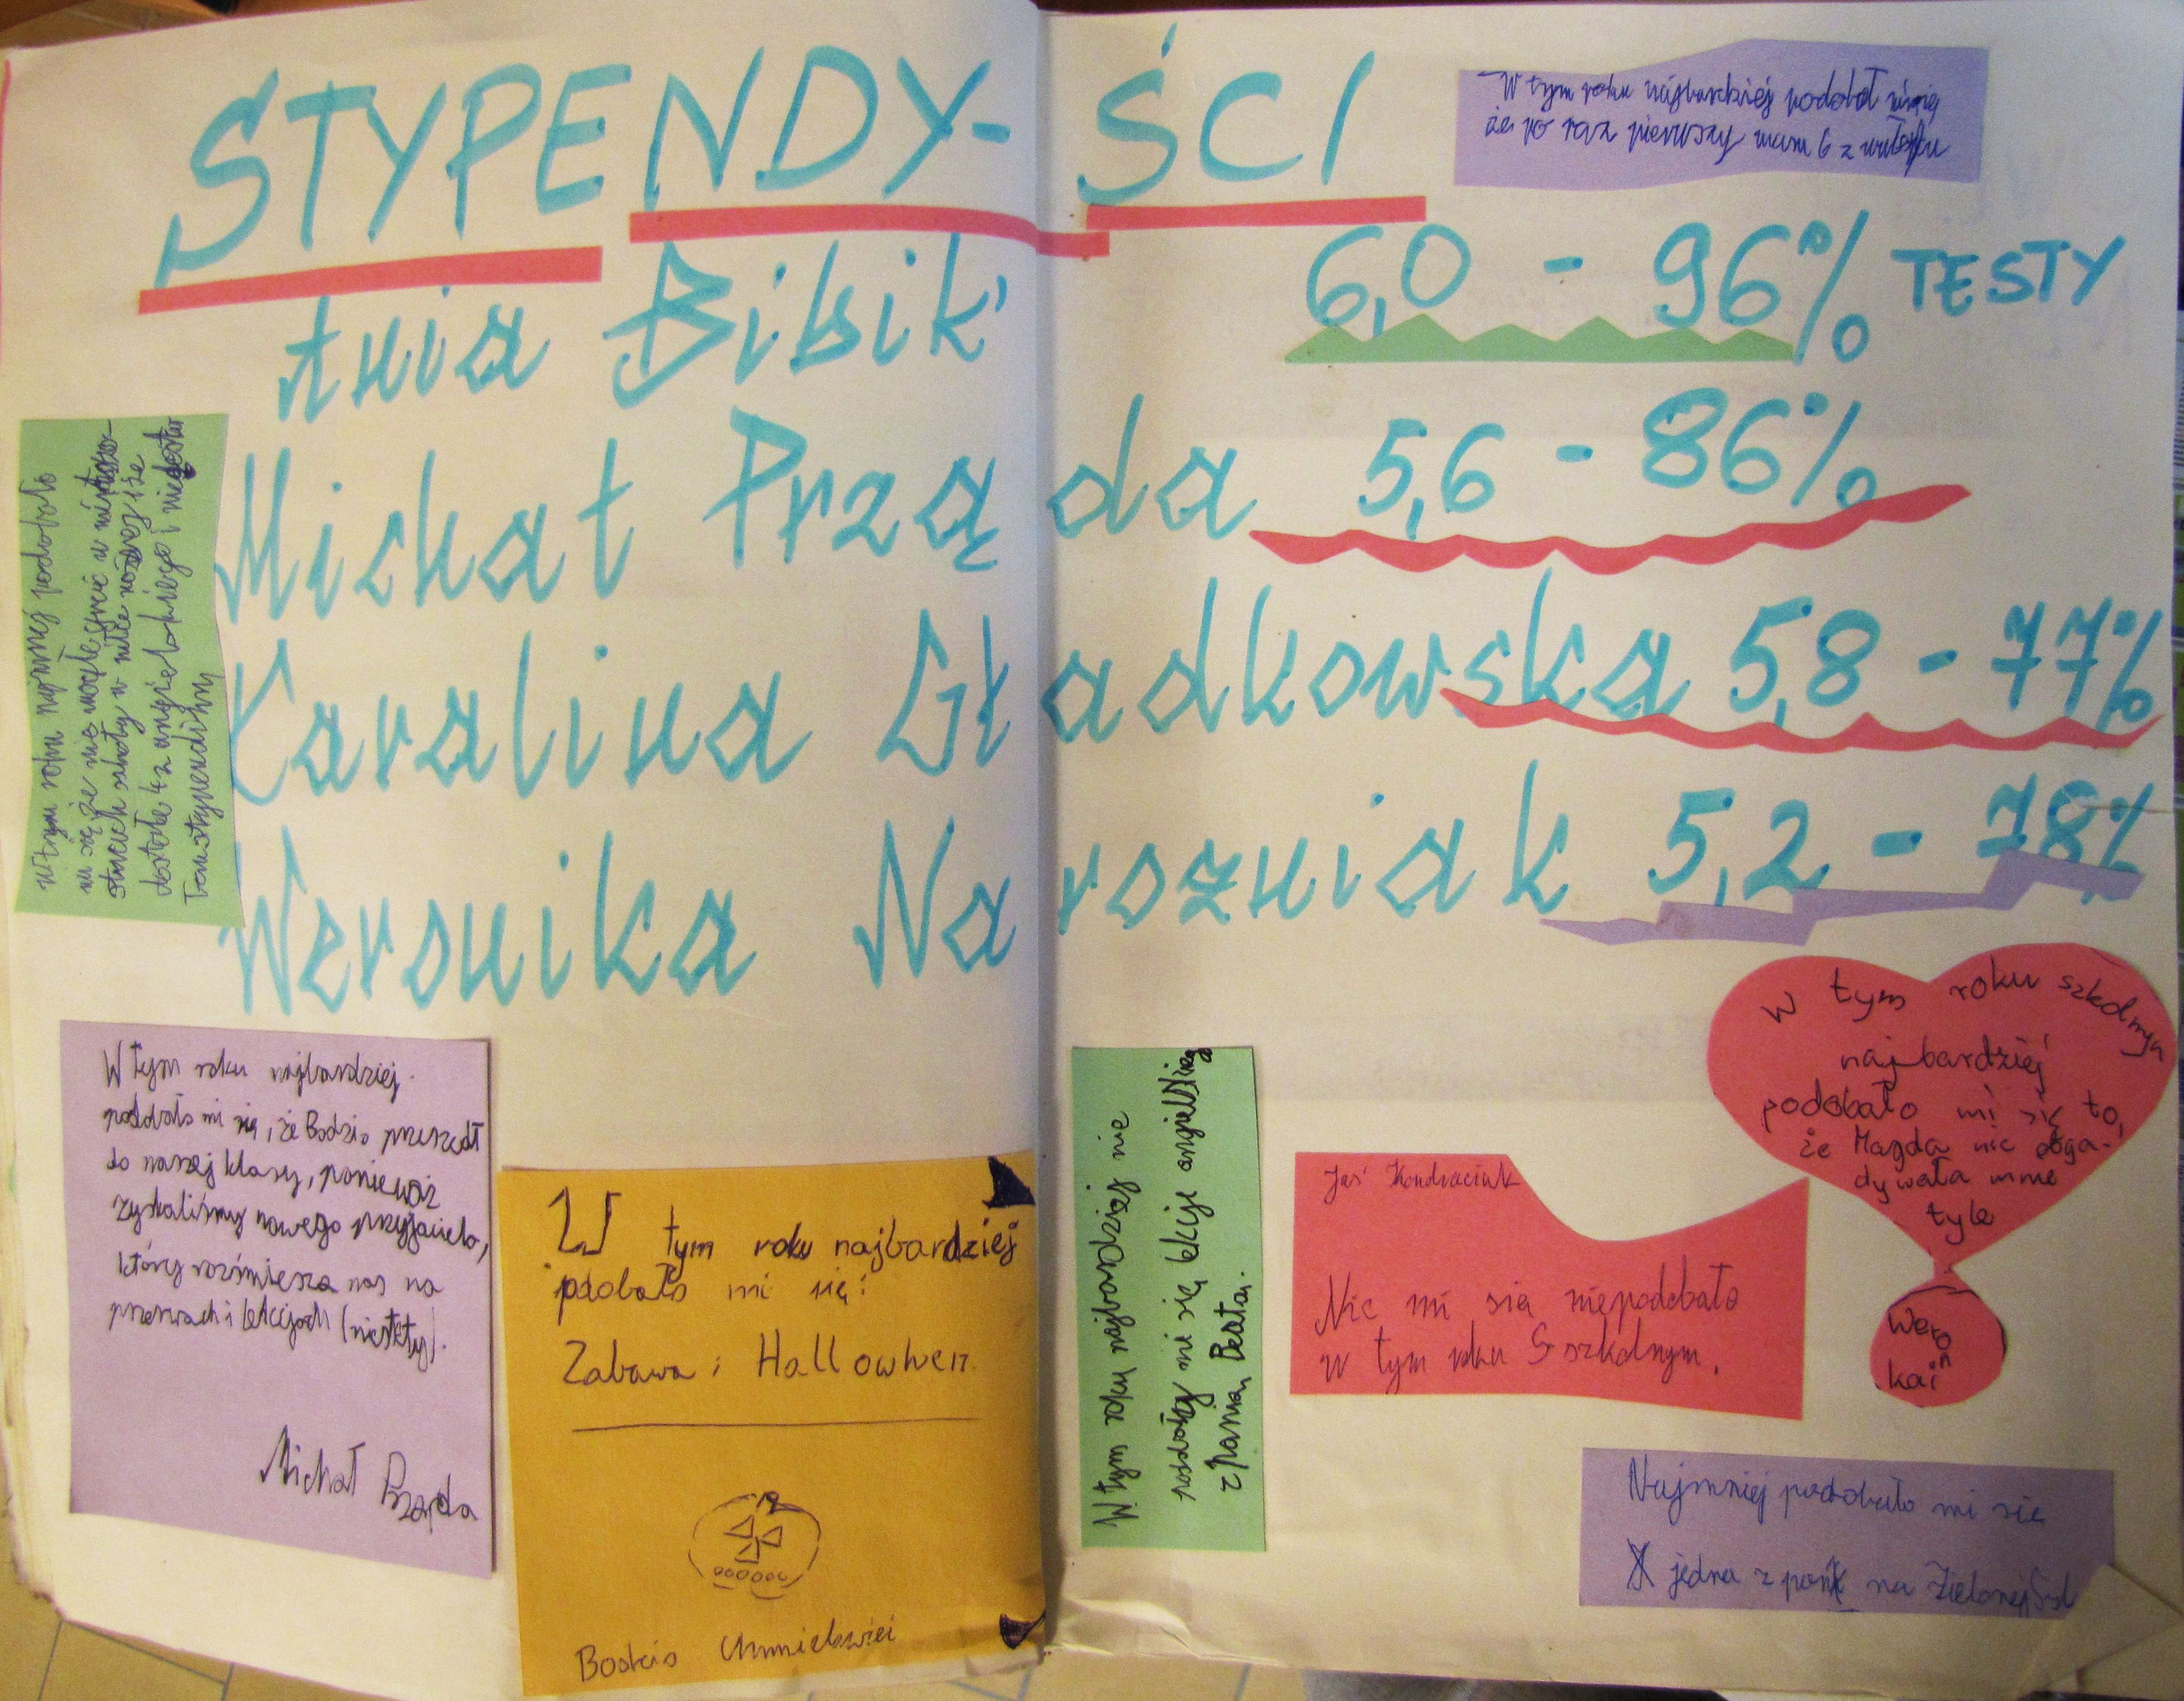 STYPENDY-ŚCI
W tym roku najbardziej podobał mi się
że po raz pierwszy mam 6 z
Ania Bibik 6,0 - 96% TESTY
Michał Prząda 5,6 - 86%
Karolina Gładkowska 5,8 - 77%
Weronika Narozniak 5,2 - 78%
W tym roku najmniej podobało
mi się że nie mogłe grać w
szkoły w i że
dostałe 4 z angielskiego i
W tym roku najbardziej
podobało mi się, że Bodzio przeszedł
do naszej klasy, ponieważ
zyskaliśmy nowego przyjaciela,
który rozśmiesza nas na
przerwach i lekcjach (niestety).
Michał Prząda
W tym roku najbardziej
podobało mi się:
Zabawa i Hallowhen.
Chmielewski
W tym roku najbardziej nie
podobały mi się lekcje angielskiego
z Panią Beatą.
Jaś Kondraciuk
Nic mi sia niepodobało
w tym roku S szkolnym.
W tym roku szkolnym
najbardziej
podobało mi się to,
że Magda nie obga-
dywała mnie
tyle
Weron
kai
Najmniej podobało mi się
jedna z pań na Zielonej Szk